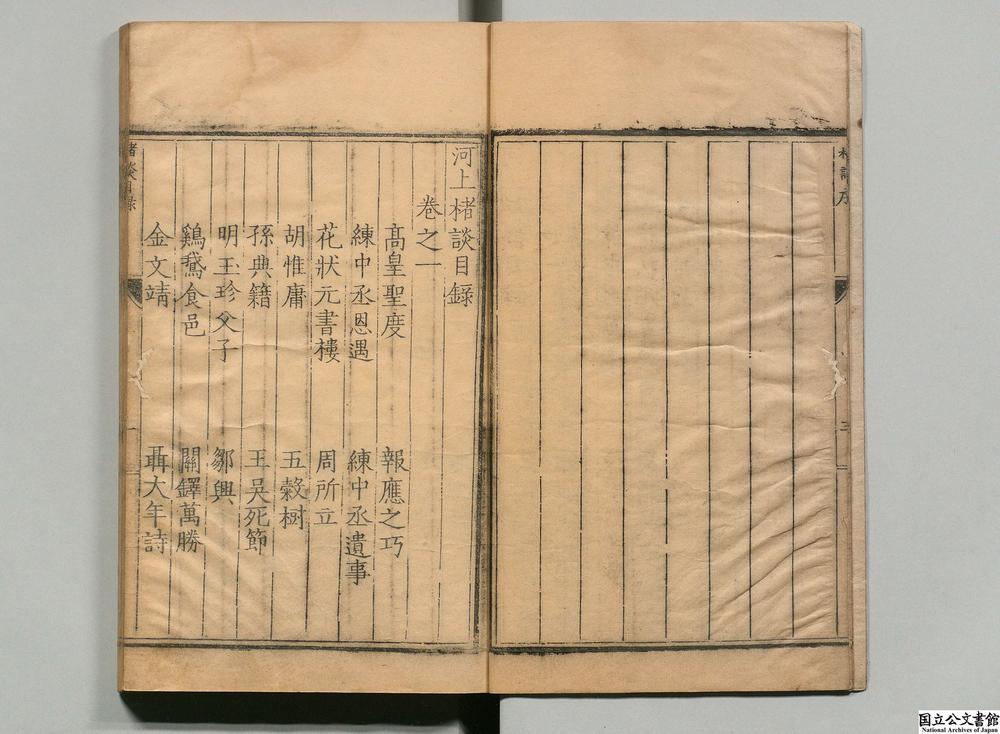 河上楮談目錄
卷之一
高皇聖度
報應之巧
練中丞恩遇
練中丞遺事
花狀元書樓
周所立
胡惟庸
五穀樹
孫典籍
王吳死節
明玉珍父子
鄒興
鷄鵞食邑
關鐸萬勝
金文靖
聶大年詩
楮談目錄
一
三
国立公文書館
National Archives of Japan